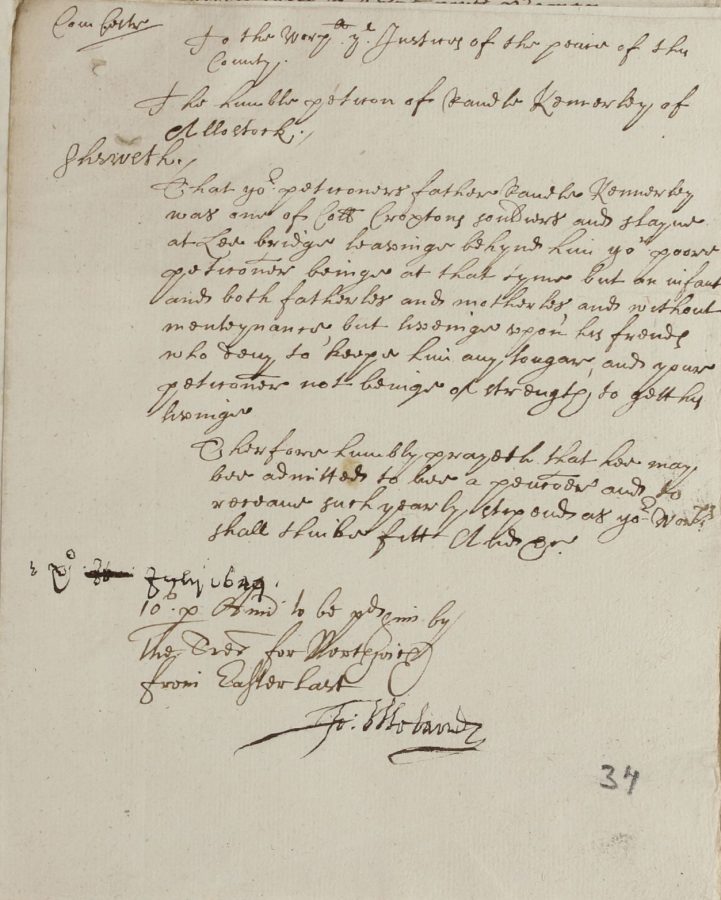 Com Cestr
To the Worp:ll ye Justices of the peace of this
County.
The humble peticon of Randle Kennerley of
Allostock.
Sheweth.
That yor peticoners father Randle Kennerley
was one of Coll Croxtons souldiers and slayne
at Lee bridge leavinge behynd him yor poore
peticoner beinge at that tyme but an infant
and both fatherles and motherles and without
menteynance but liveinge upon his frends
who deny to keepe him any longar, and your
peticoner not beinge of strength to gett his
livinge
Therfore humbly prayeth that hee may
bee admitted to bee a penconer and to
receave such yearly stipend as yor Worpps
shall thinke fitt And &c.
July 1649.
10s p Annu to be pd him by
The Trer for Northwich
from Easter last
34